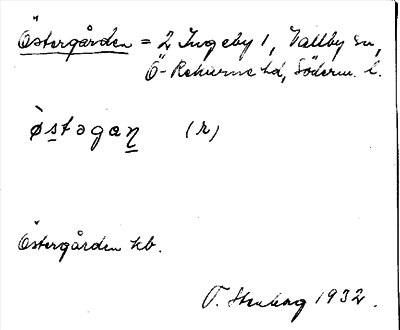 Östergården = 2 Ingeby 1, Vallby sn,
Ö-Rekarne hd, Söderm. l.
ø̀stəgaṉ (r)
Östergården kb.
1932.